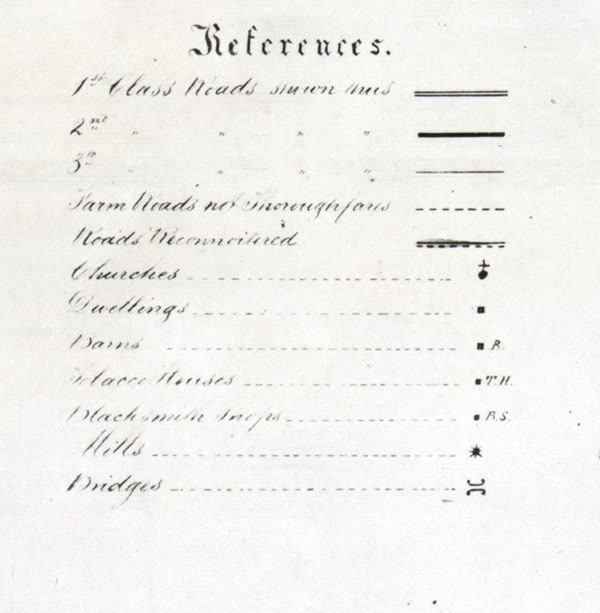 References.
1st Class Roads shown thus
2nd " " " "
3rd " " " "
Farm Roads not Thoroughfares
Roads Reconnoitered
Churches
Dwellings
Barns B.
Tobacco Houses T.H.
Blacksmith Shops B.S.
Mills
Bridges